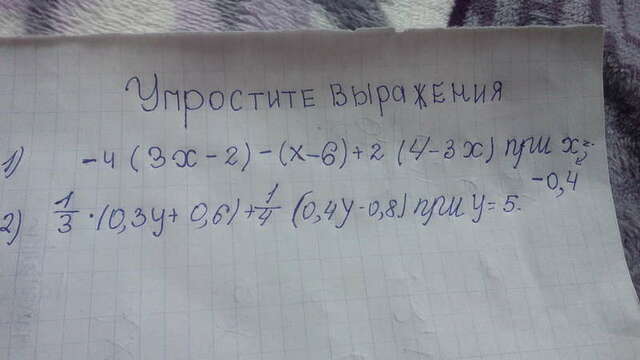 Упростите выражения
1) -4 (3x-2)-(x-6)+2 (4-3x) при x=
-0,4
2) 1/3 ·(0,3y+0,6)+1/4 (0,4y-0,8) при y=5.